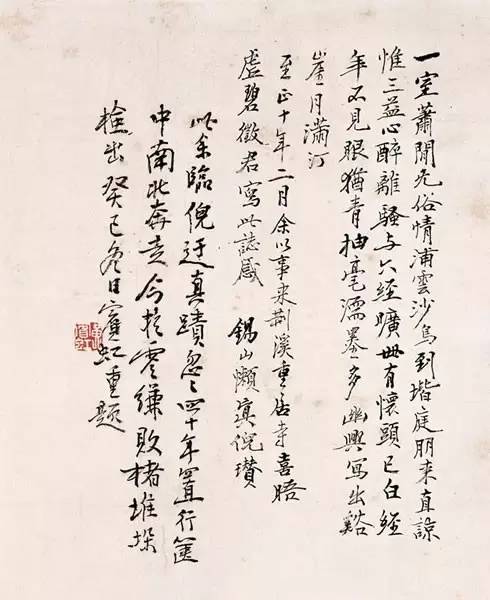 一室蕭閒无俗情浦雲沙鳥到堦庭朋來直諒
惟三益心醉離騷与六經曠世有懷頭已白經
年不見眼猶青抽毫濡墨多幽興寫出谿
崖月滿汀
至正十年二月余以事來荆溪重居寺喜晤
虛碧徵君寫此誌感 錫山懶瓚倪瓚
此余臨倪迂真蹟忽忽四十年置行篋
中南北奔走今於零縑敗楮堆垛
檢出癸巳冬日賓虹重題